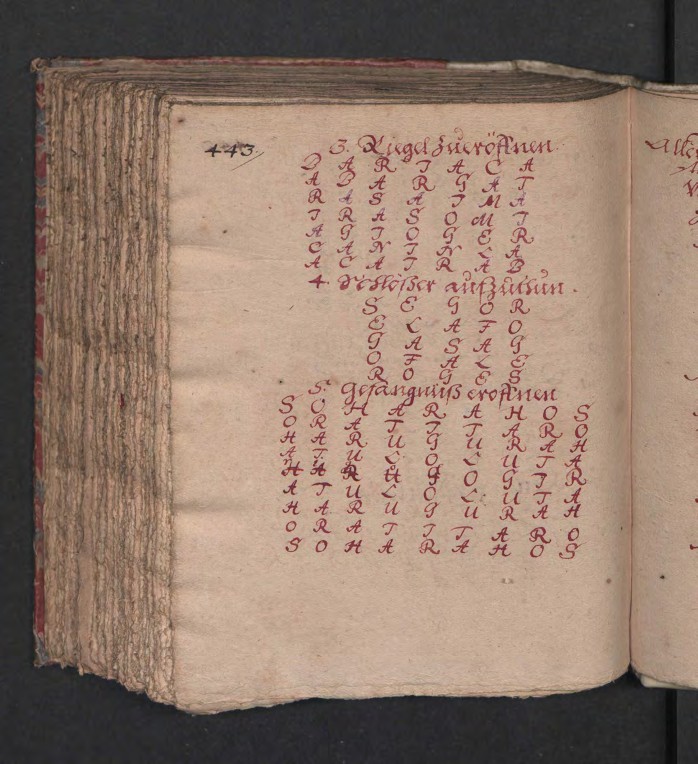 443
3. Riegel Zueröffnen
D A R T A C A
A D A R G A T
R A S A T M A
T R A S O M T
A G T O G E R
C A N T N L A
A C A T R A B
4. Schlößer aufzuthun.
S E G O R
E L A F O
G A S A G
O F A L E
R O G E S
5. Gefängnuß eröffnen
S O H A R A H O S
O R A T T T A R O
H A R U G U R A H
A T U L O L U T A
H A R U O G R
A T U L O L U T A
H A R U G U R A H
O R A T T T A R O
S O H A R A H O S